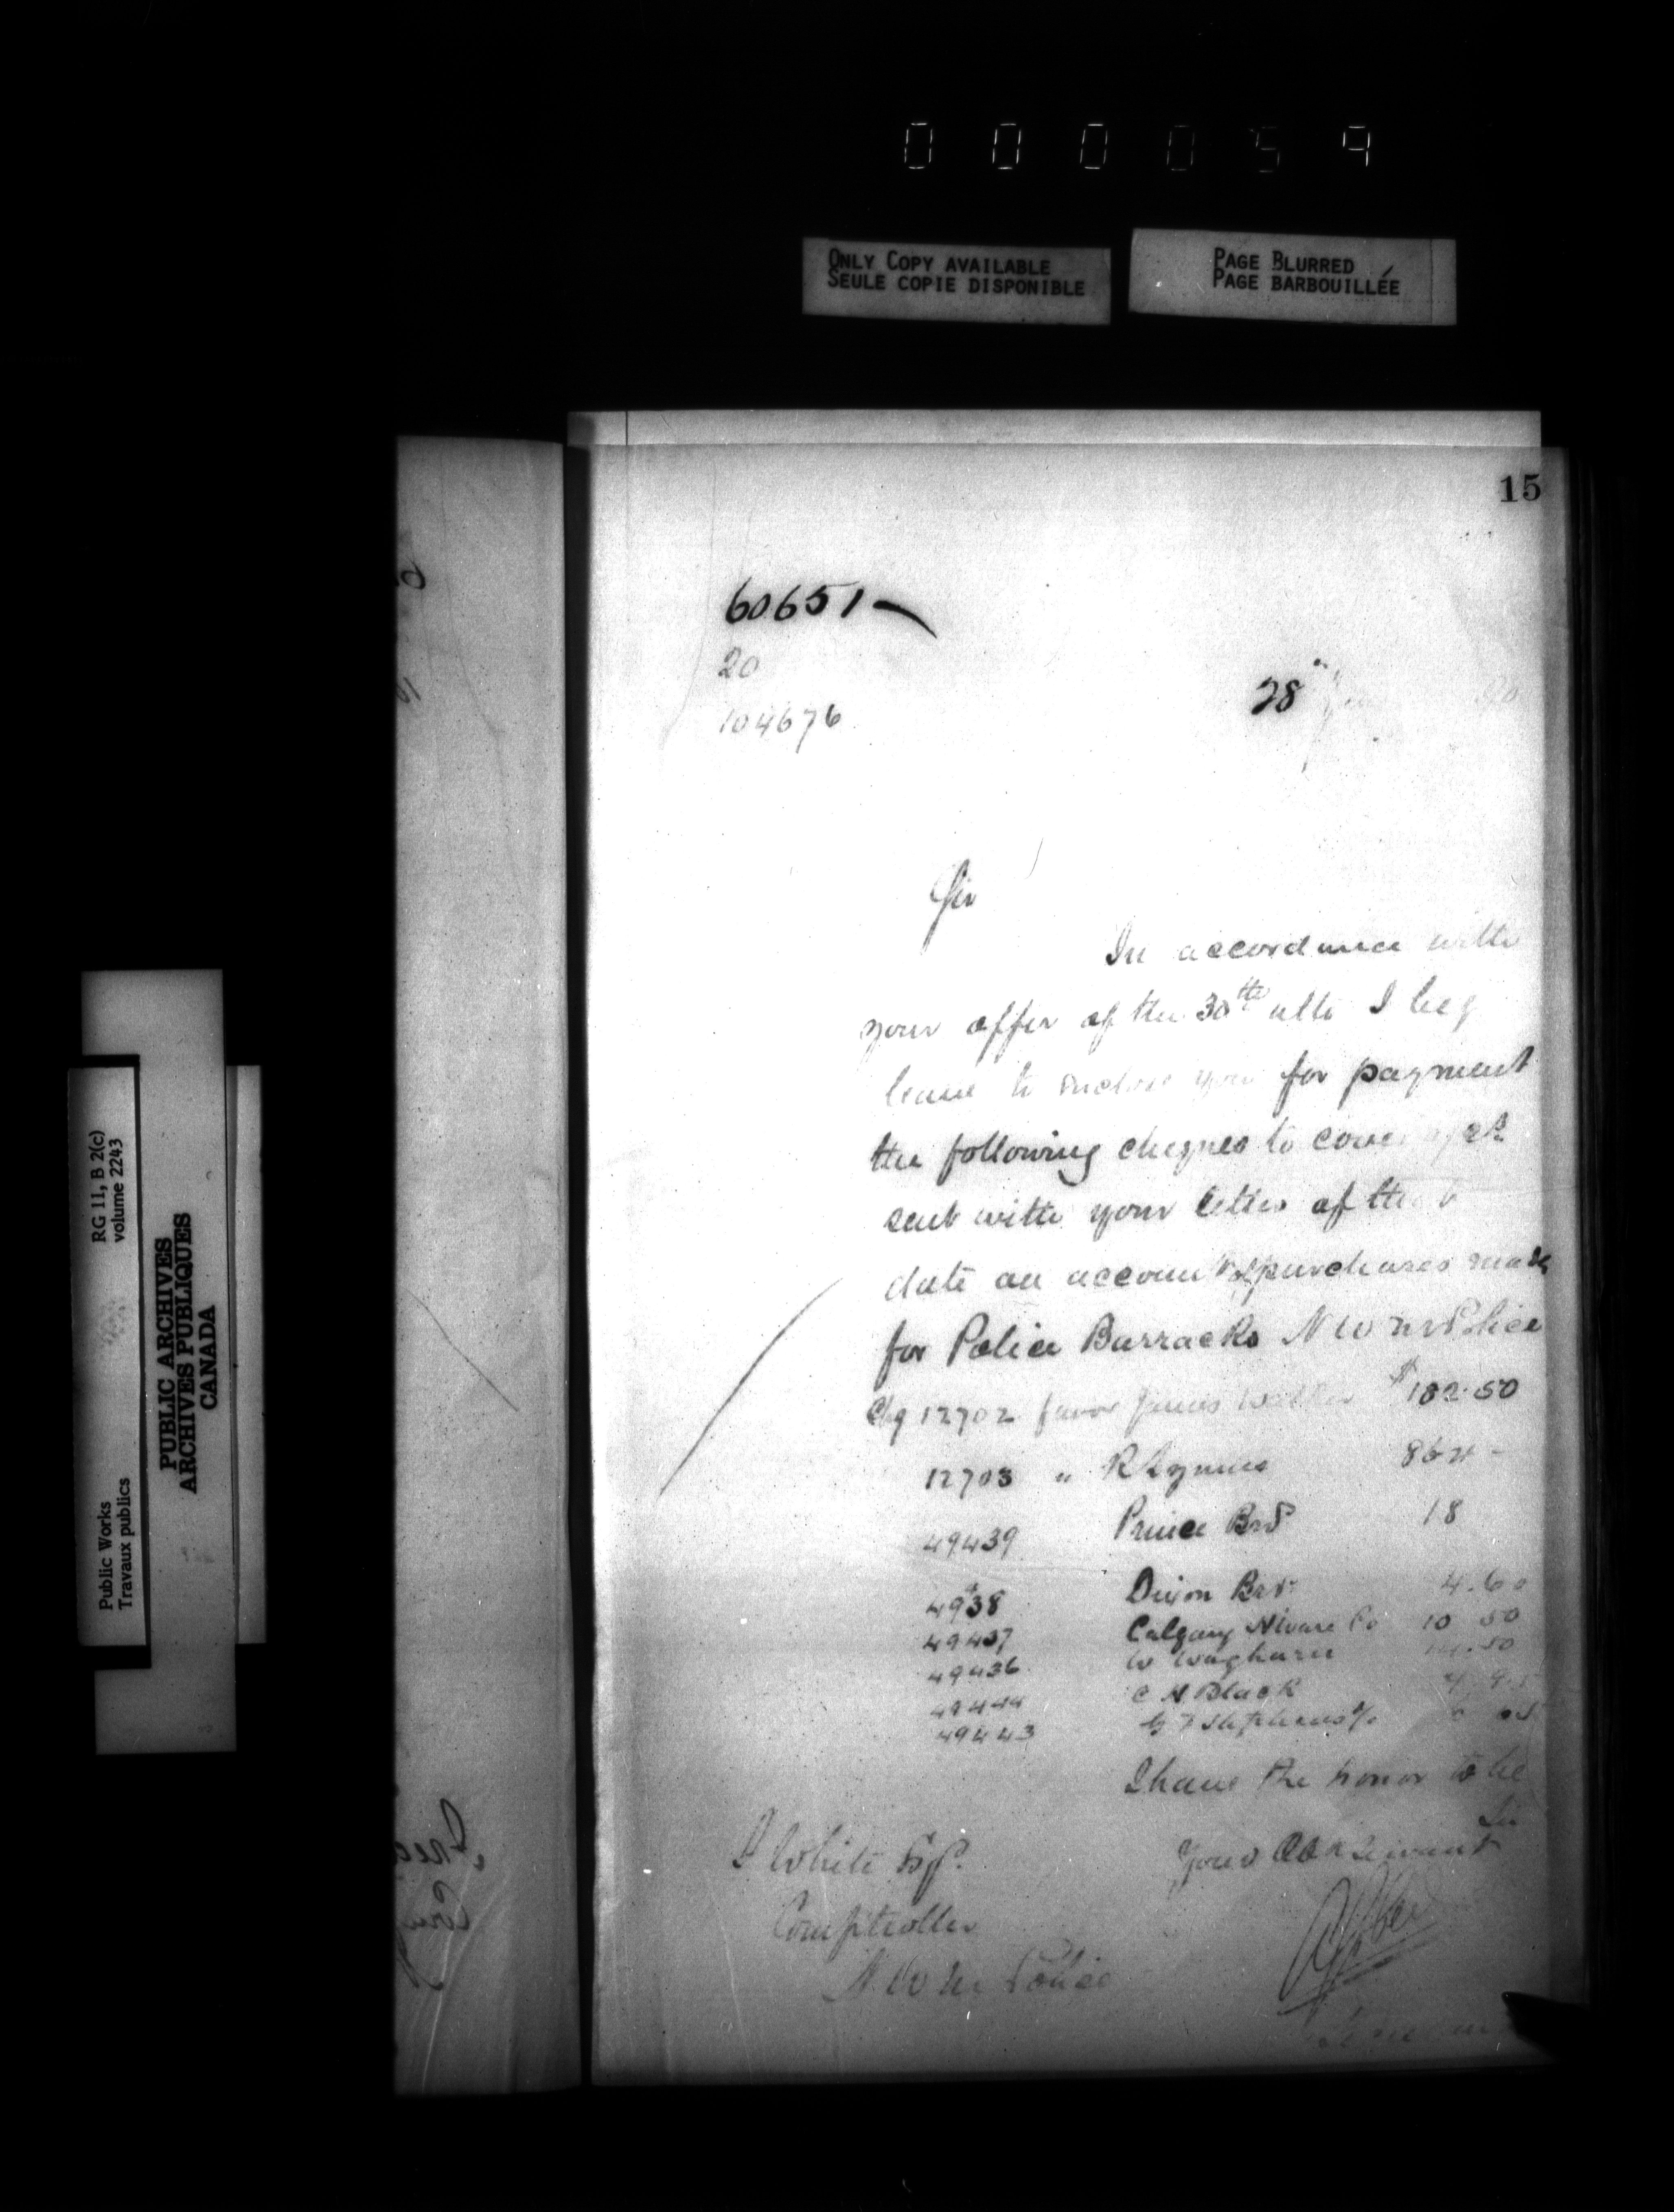 000059
ONLY COPY AVAILABLE
SEULE COPIE DISPONIBLE
PAGE BLURRED
PAGE BARBOUILLÉE
RG 11, B 2(c)
volume 2243
PUBLIC ARCHIVES
ARCHIVES PUBLIQUES
CANADA
Public Works
Travaux publics
15
60651
20
104676
28
Sir
In accordance with
your offer of the 30th ulto I beg
leave to enclose you for payment
the following cheques to cover
sent with your letter of the
date on account of purchases made
for Police Barracks N W M Police
Chq 12702 favor James $182.50
12703 " R 864 -
49439 Prince Bros 18
4938 Dixon Bros 4.60
49437 Calgary Co 10 50
49436 W 50
49444 C N Black
49443 G F Stephens
I have the honor to be
Sir
Your Obt Servant
F White Esq.
Comptroller
N. W M Police